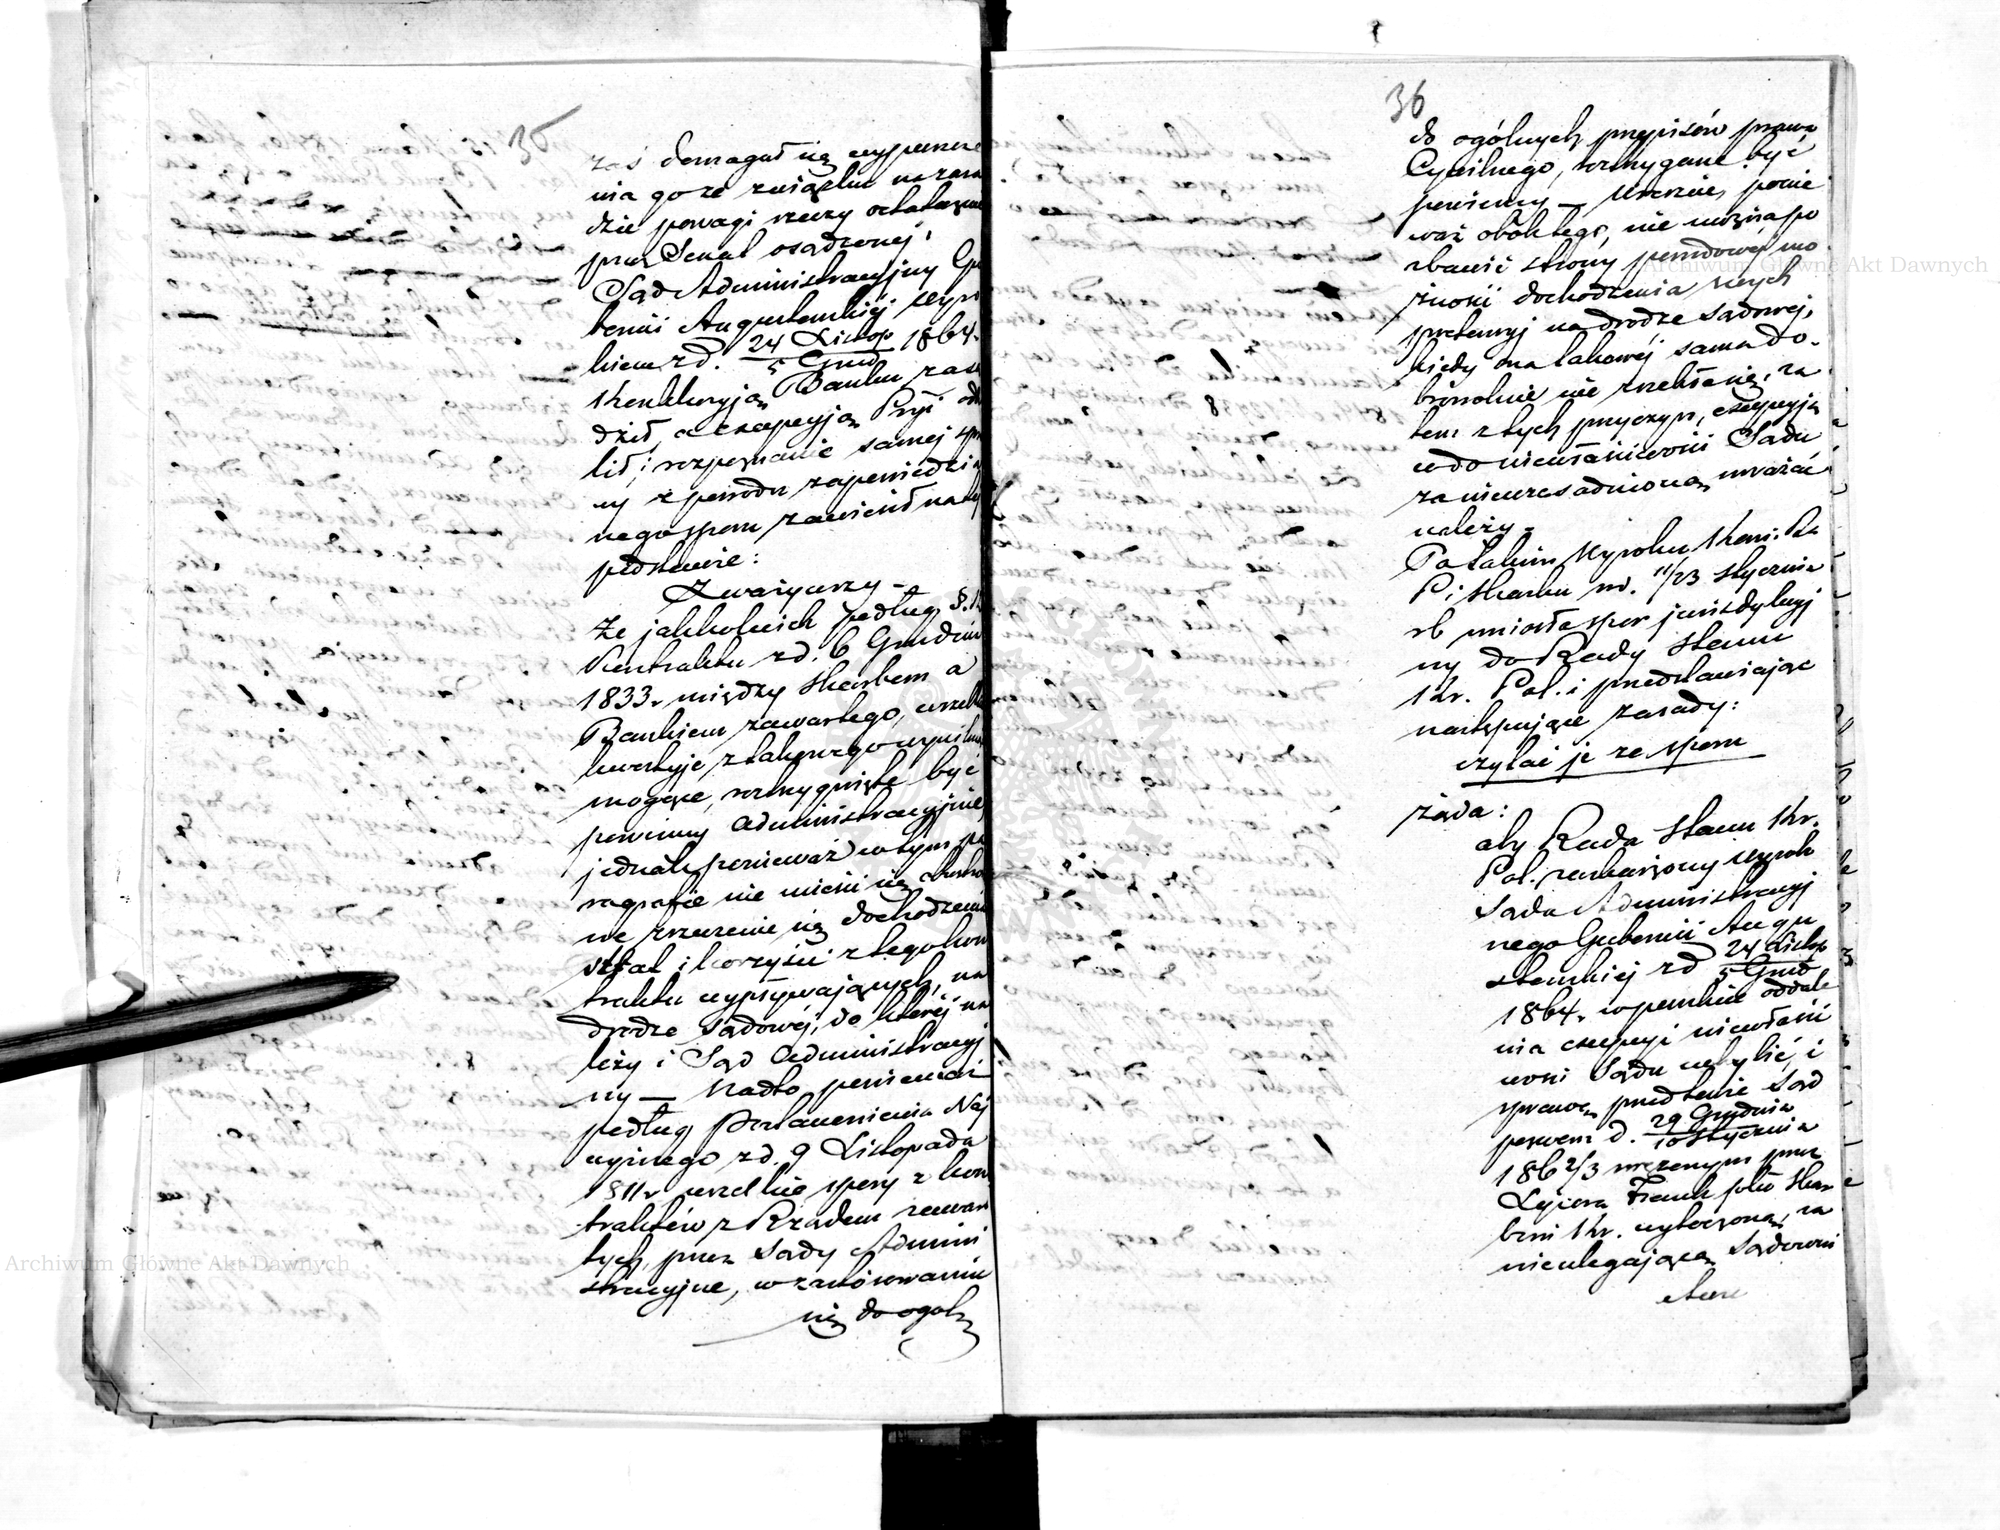 35
zaś domagał się wypuszcze
nia go ze związku na zasa
dzie powagi rzeczy ostatecznie
przez Senat osądzonej,
Sąd Administracyjny Gu
bernii Augustowskiej wyro
kiem z d. 24 Listop / 5 Grud 1864.
dził, a excepcją Pryi odda
lił; rozpoznanie samej spra
wy z powodu zapowiedzia
nego sporu zawiesił na tej
podstawie:
Zważywszy –
Że jakkolwiek podług §. 1
Kontraktu z d. 6 Grudnia
1833 r. między Skarbem a
Bankiem zawartego, wszelkie
kwestyje z takowego wynikać
mogące, rozstrzygnięte być
powinny administracyjnie,
jednak ponieważ w tym pa
ragrafie nie mieści się
ne zrzeczenie się dochodzenia
strat i korzyści z tego kon
traktu wypływających, na
drodze sądowej, do której na
leży i Sąd Administracyj
ny — Nadto, ponieważ
podług Postanowienia Naj
wyższego z d. 9 Listopada
1811 r. wszelkie spory z kon
traktów z Rządem zawar
tych, przez Sądy Admini
stracyjne, w zastosowaniu
się do ogól
36
do ogólnych przepisów prawa
Cywilnego, rozstrzygane być
powinny — Wreszcie, ponie
waż obok tego, nie można po
zbawić strony powodowej mo
żności dochodzenia swych
pretensyj na drodze sądowej,
kiedy ona takowej sama do-
browolnie nie zrzekła się, za
tem z tych przyczyn, excepcyją
co do niewłaściwości Sądu
za nieuzasadnioną uważać
należy.
Po takim Wyroku Kom: Rz
P. i Skarbu w d. 11/23 Stycznia
rb wniosła spór jurisdykcyj
ny do Rady Stanu
Kr. Pol. i przedstawiając
następujące zasady:
czytać je ze sporu
żąda:
aby Rada Stanu Kr.
Pol. zaskarżony Wyrok
Sądu Administracyj
nego Gubernii Augu
stowskiej z d 24 Listop / 5 Grud
1864. w punkcie oddale
nia excepcyi niewłaści
wości Sądu uchylić, i
sprawę przed tenże Sąd
pozwem d. 29 Grudnia / 10 Stycznia
1862/3 wręczonym przez
Lejzora Frenk Skar
bowi Kr. wytoczoną, za
nieulegającą Sądowni
Archiwum Główne Akt Dawnych
Archiwum Główne Akt Dawnych